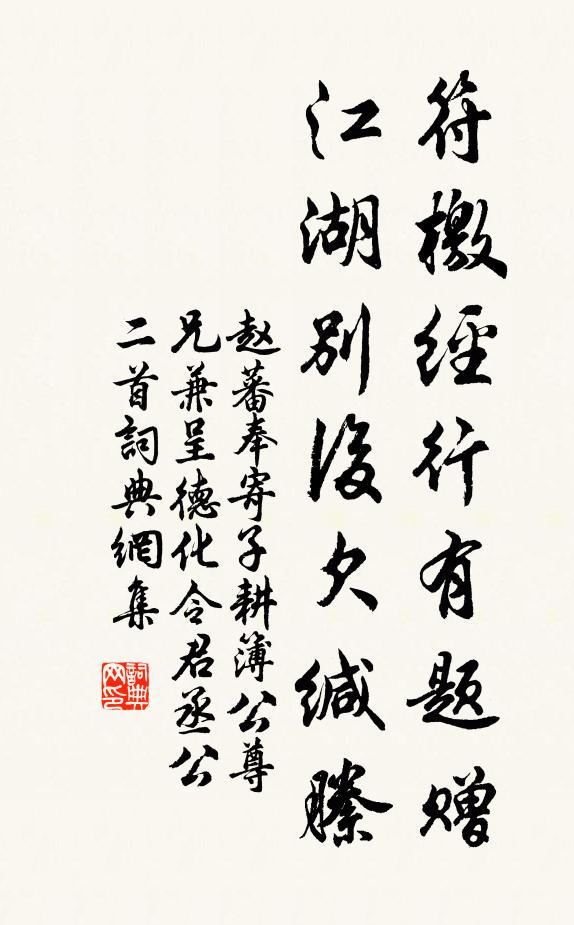 符檄經行有題贈
江湖別後欠緘縢
赵蕃奉寄子耕簿公尊
兄兼呈德化令君丞公
二首詞典網集
詞典网印